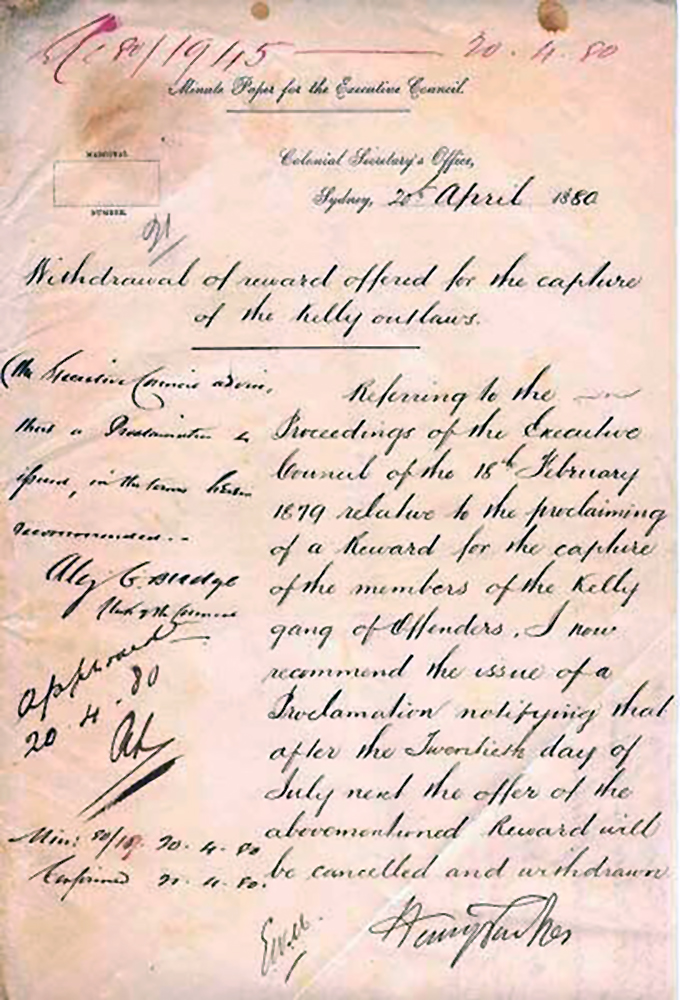 Ec 80/1945 — 20.4.80
Minute Paper for the Executive Council.
MARGINAL
NUMBER.
Colonial Secretary's Office,
Sydney, 20th April 1880
Withdrawal of reward offered for the capture
of the Kelly outlaws.
Referring to the
Proceedings of the Executive
Council of the 18th February
1879 relative to the proclaiming
of a Reward for the capture
of the members of the Kelly
gang of Offenders, I now
recommend the issue of a
Proclamation notifying that
after the Twentieth day of
July next the offer of the
abovementioned Reward will
be cancelled and withdrawn
Henry Parkes
The Executive Council advise,
that a Proclamation be
issued, in the terms herein
recommended.
Alex C. Budge
Clerk of the Council
Approved
20.4.80
Min: 80/18. 20.4.80
Confirmed 4.80.